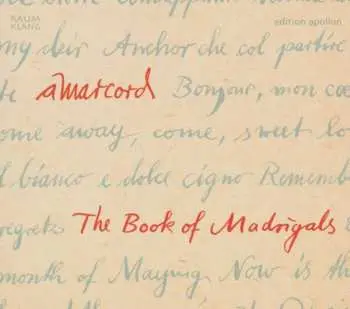 RAUM
KLANG
edition apollon
my deir Anchor che col partire
te amarcord Bonjour, mon cœ
ome away, come, sweet lo
l bianco e dolce cigno Remembe
regretes The Book of Madrigals
month of Maying Now is the